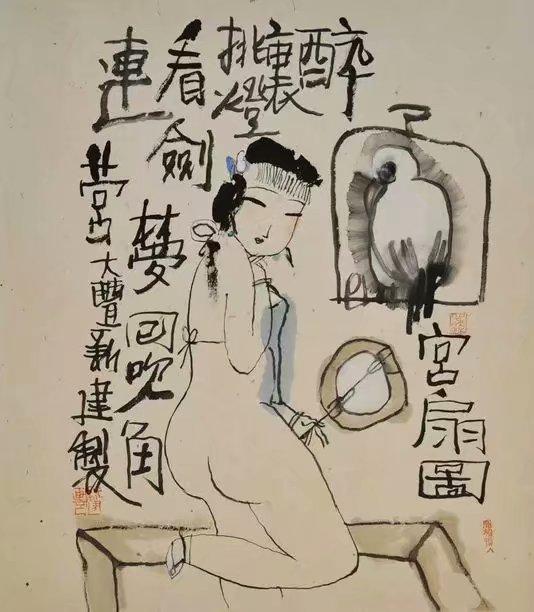 醉
裏
挑燈
看劍
夢回吹角
連
營
大豐新建製
宮扇圖